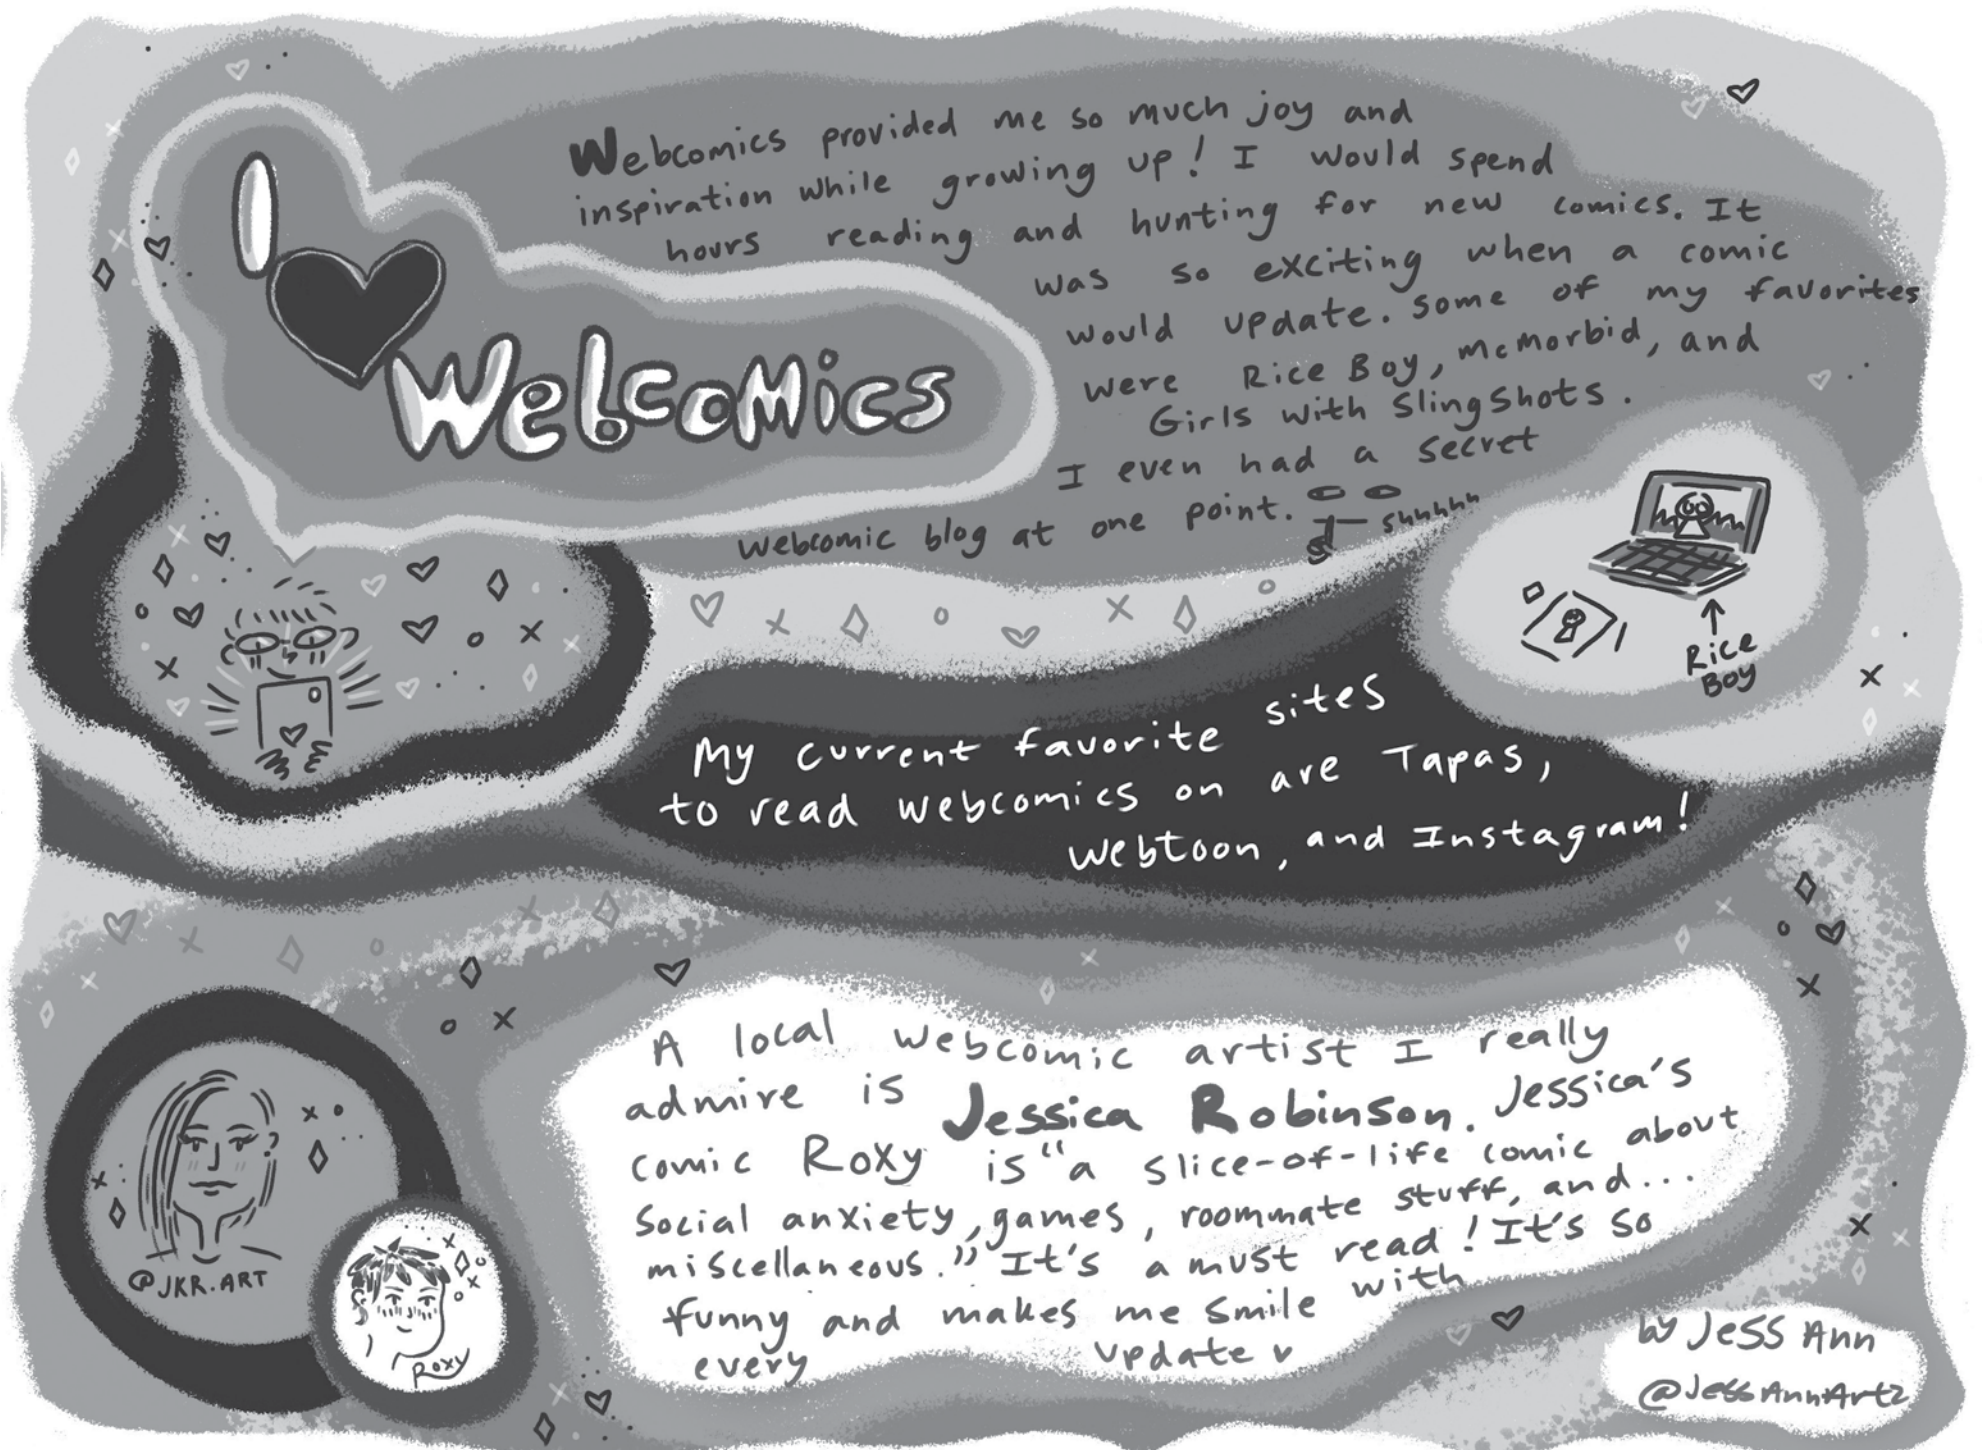 I ♥ Webcomics
Webcomics provided me so much joy and
inspiration while growing up! I would spend
hours reading and hunting for new comics. It
was so exciting when a comic
would update. Some of my favorites
were Rice Boy, McMorbid, and
Girls with SlingShots.
I even had a secret
webcomic blog at one point.
shhhhh
Rice
Boy
My current favorite sites
to read webcomics on are Tapas,
Webtoon, and Instagram!
A local webcomic artist I really
admire is Jessica Robinson. Jessica's
comic Roxy is "a slice-of-life comic about
social anxiety, games, roommate stuff, and...
miscellaneous." It's a must read! It's so
funny and makes me smile with
every update
@JKR.ART
Roxy
by Jess Ann
@JessAnnArtz